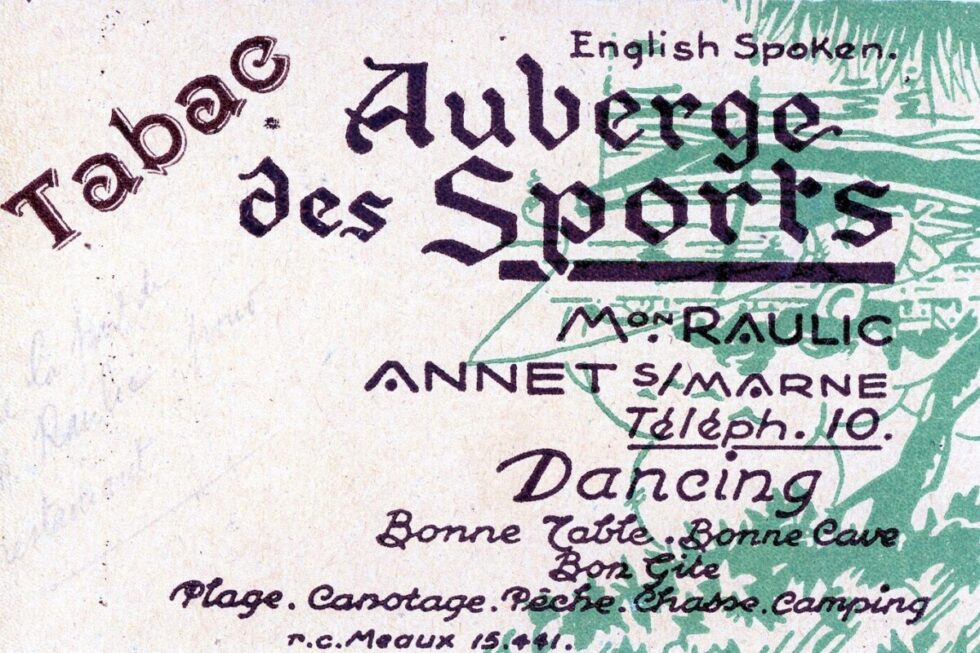 English Spoken.
Tabac
Auberge
des Sports
Mon. RAULIC
ANNET S/MARNE
Téléph. 10.
Dancing
Bonne Table. Bonne Cave
Bon Gite
Plage. Canotage. Pêche. Chasse. Camping
r.c. Meaux 15.441.
Raulic pour
restaurant